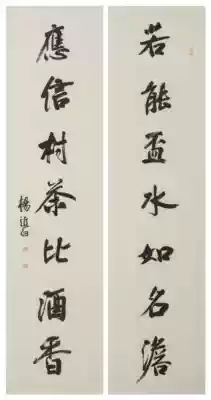 若能盃水如名澹
應信村茶比酒香
楊